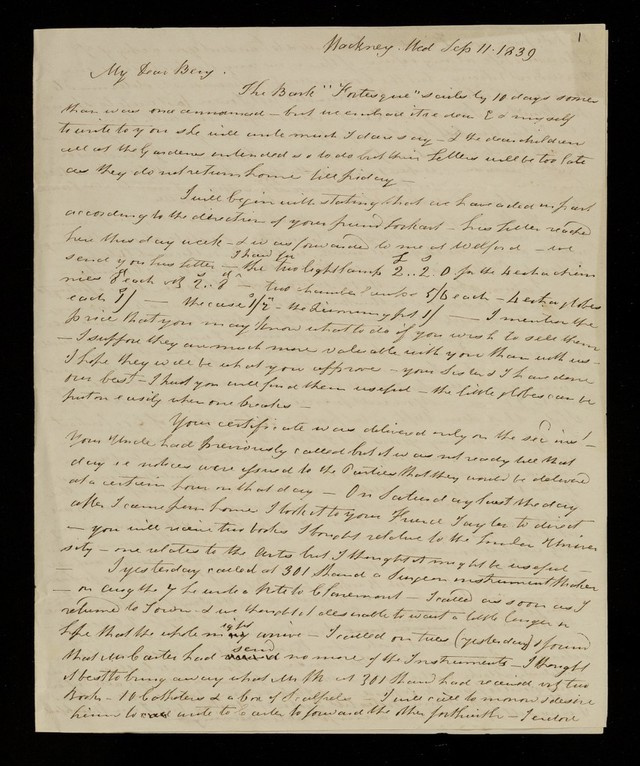 1
Hackney. Wed Sep 11. 1839
My Dear Benj.
The Bark "Fortesque" sails by 10 days sooner
than was once announced - but we embrace it
to write to you she will write much I dare say - & the dear children
all at the Gardens intended so to do but their Letters will be too late
as they do not return home till friday -
I will begin with stating that we have acted in part
according to the direction of your friend Lockart - his Letter reached
here this day week - & was forwarded to me at Welford - we
send you his letter - I have
the two light lamp 2..2..0 for the 4 extra
each 2..8 - two 5/6 each - 4 extra globes
each 9/ - the case - the 1/ - I mention the
price that you may know what to do if you wish to sell them
- I suppose they are much more valuable with you than with us -
I hope they will be what you approve - your Sisters & I have done
our best - I trust you will find them useful - the little globes can be
put on easily when one breaks -
Your certificate was delivered only on the
Your Uncle had previously called but it was not ready till that
day i.e notices were issued to the Parties that they would be delivered
at a certain hour on that day - On Saturday last the day
after I came from home I took it to your Friend Taylor to direct
- you will receive two books I bought relative to the London Univer
sity - one relates to the Arts but I thought it might be useful -
- I yesterday called at 301 Strand a Surgeon instrument Maker
- on the 7 he wrote to Claremont - I called as soon as I
returned to Town - & we thought it desirable to wait a little longer in
hope that the whole might arrive - I called on tues (yesterday) & found
that Mr Carter had send no more of the Instruments - I thought
it best to bring away what at 301 Strand had received viz two
Books - 10 Catheters & a box of Scalpels - I will call to morrow & desire
him to write to Carter to forward the other forthwith - I enclose